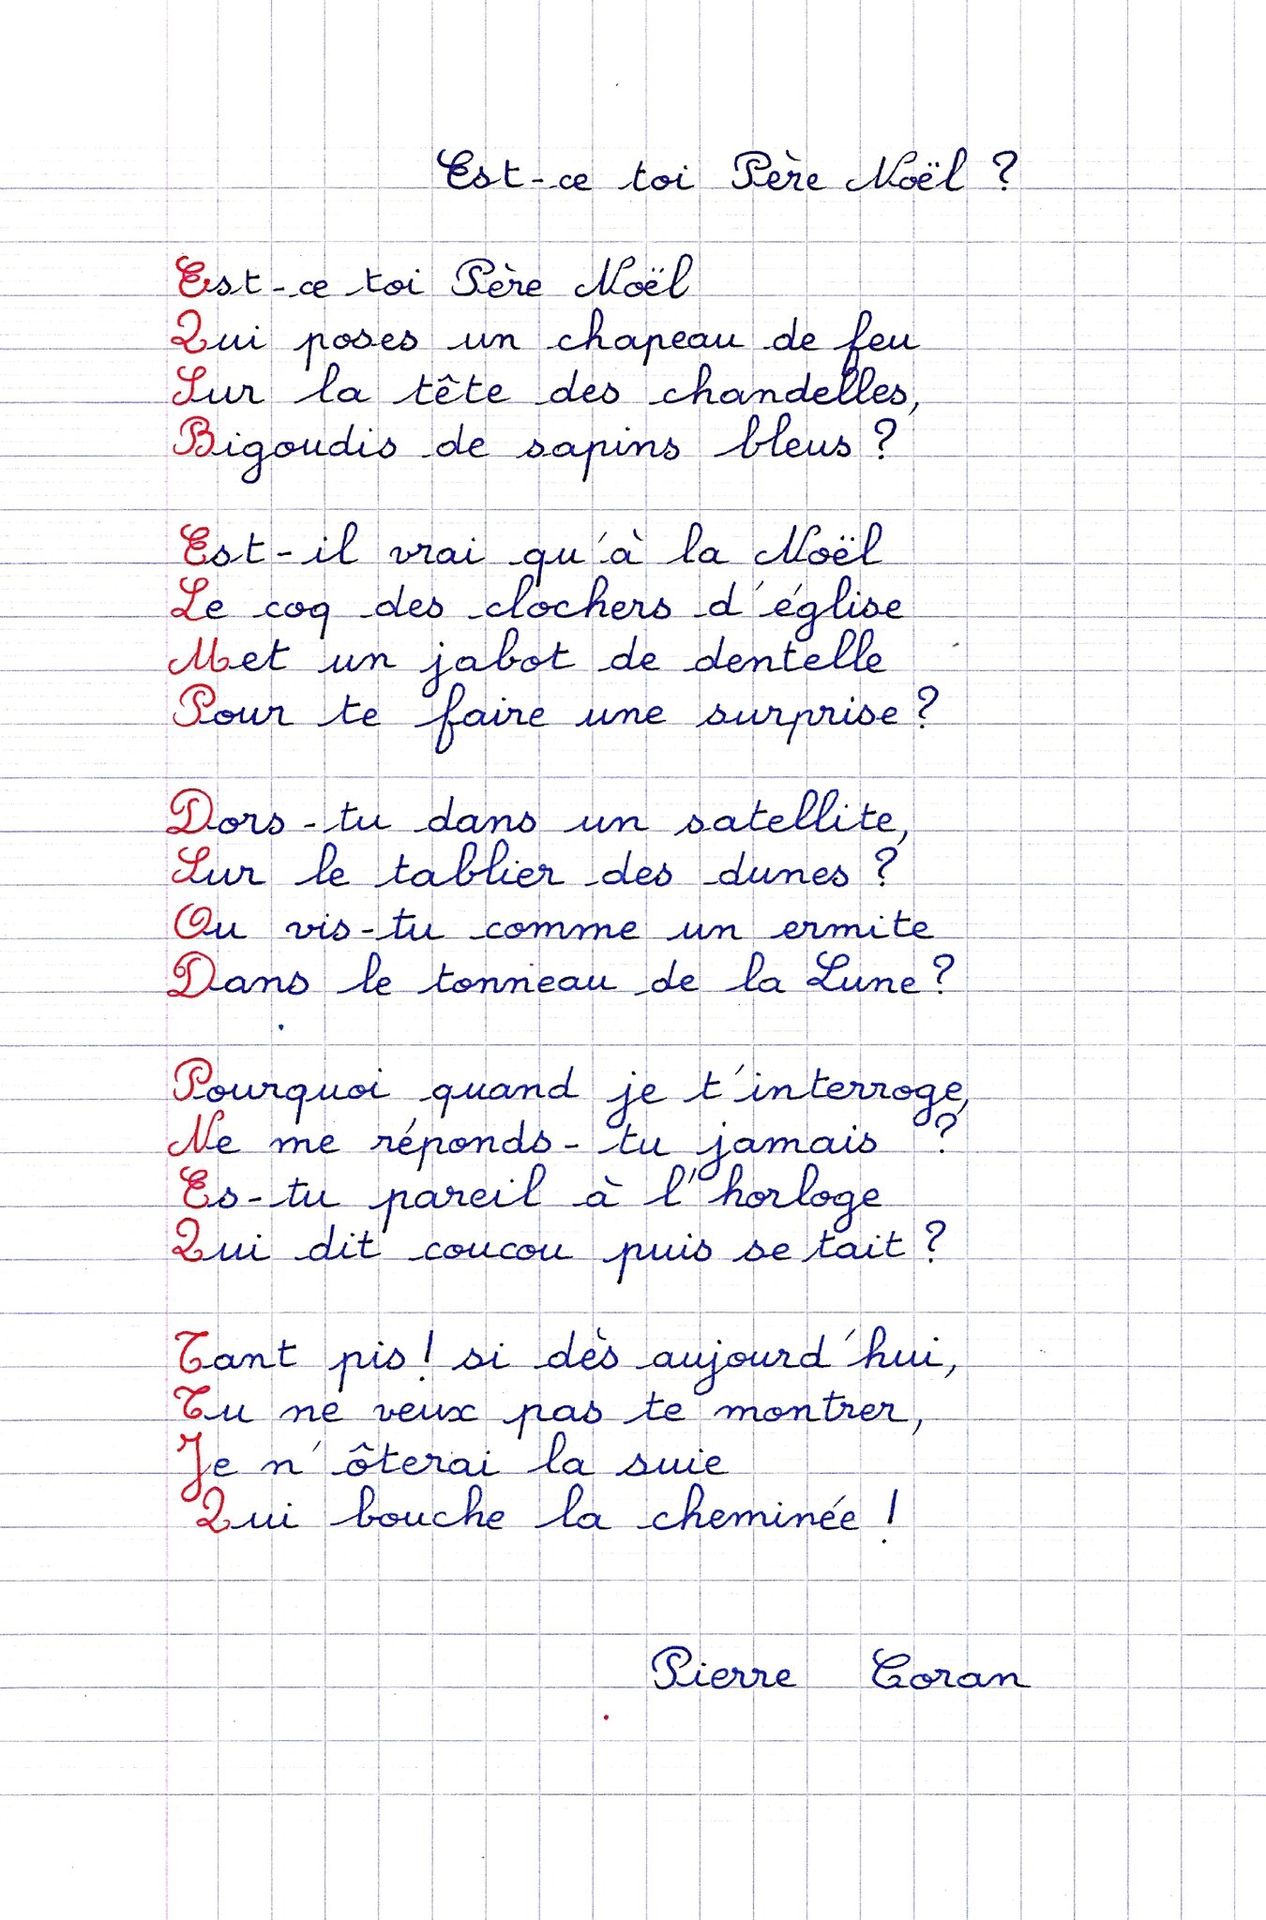 Est-ce toi Père Noël ?
Est-ce toi Père Noël
Qui poses un chapeau de feu
Sur la tête des chandelles,
Bigoudis de sapins bleus ?
Est-il vrai qu'à la Noël
Le coq des clochers d'église
Met un jabot de dentelle
Pour te faire une surprise ?
Dors-tu dans un satellite,
Sur le tablier des dunes ?
Ou vis-tu comme un ermite
Dans le tonneau de la Lune ?
Pourquoi quand je t'interroge,
Ne me réponds-tu jamais ?
Es-tu pareil à l'horloge
Qui dit coucou puis se tait ?
Tant pis ! si dès aujourd'hui,
Tu ne veux pas te montrer,
Je n'ôterai la suie
Qui bouche la cheminée !
Pierre Coran